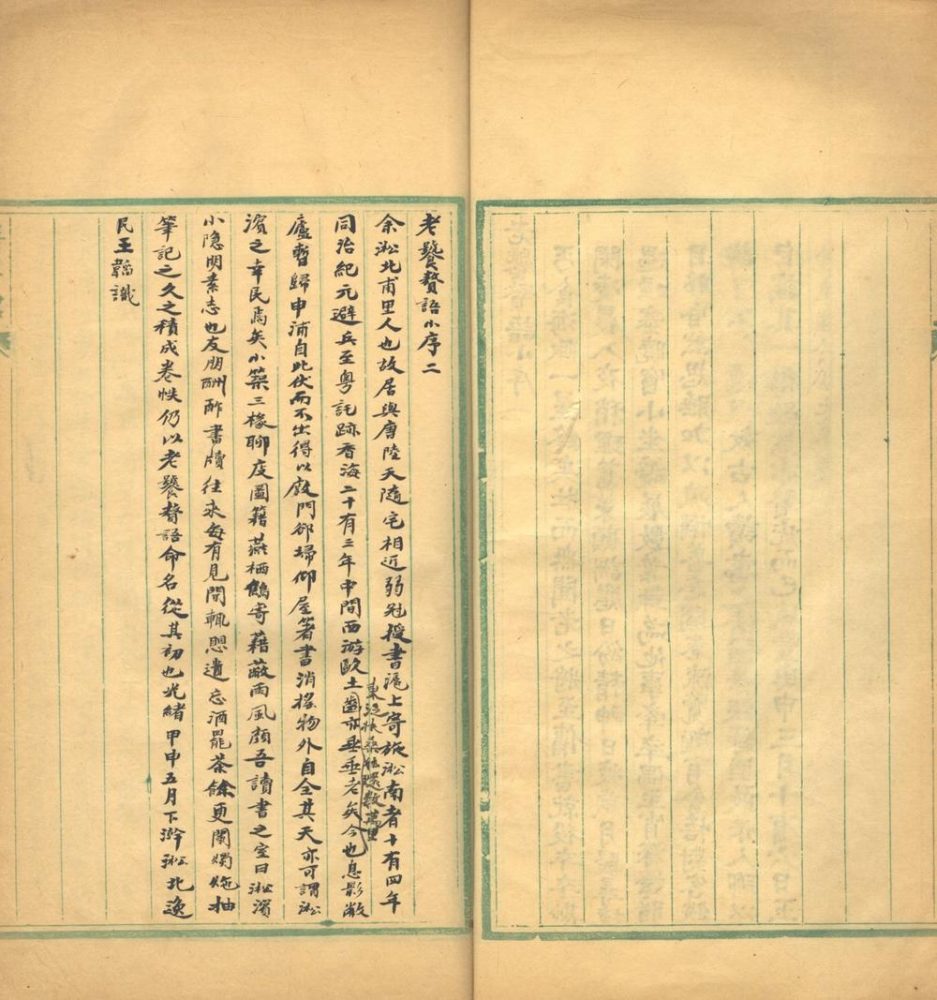 老饕贅語小序二
余淞北甫里人也故居與唐陸天隨宅相近弱冠授書滬上寄旅淞南者十有四年
同治紀元避兵至粵託跡香海二十有三年中間西游歐土東泛扶桑往還數萬里亦垂垂老矣今也息影敝
廬暫歸申浦自此伏而不出得以殷門卻埽仰屋著書消搖物外自全其天亦可謂淞
濱之幸民焉矣小築三椽聊庋圖籍燕栖鷦寄藉蔽雨風顏吾讀書之室曰淞濱
小隱明素志也友朋酬酢書牘往來每有見聞輒思遺忘酒罷茶餘更闌燭灺抽
筆記之久之積成卷帙仍以老饕贅語命名從其初也光緒甲申五月下澣淞北逸
民王韜識